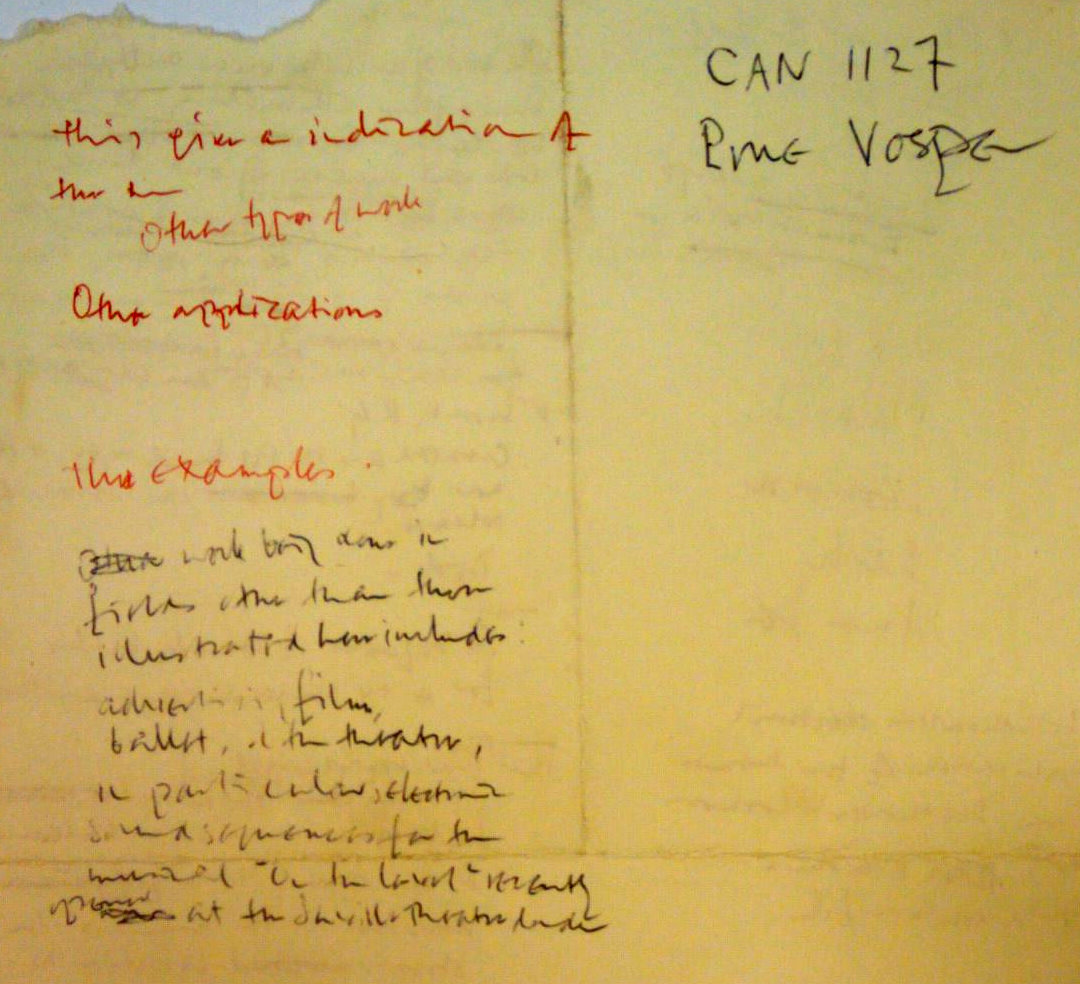 CAN 1127
Vosper
this give a indication of
the
Other types of work
Other applications
The examples
work being done in
fields other than those
illustrated here includes:
advertising, film,
ballet, & the theatre,
in particular, electronic
sound sequences for the
musical "On the Level" recently
opened at the Saville Theatre